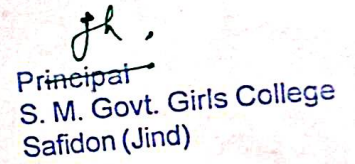 Principal
S. M. Govt. Girls College
Safidon (Jind)